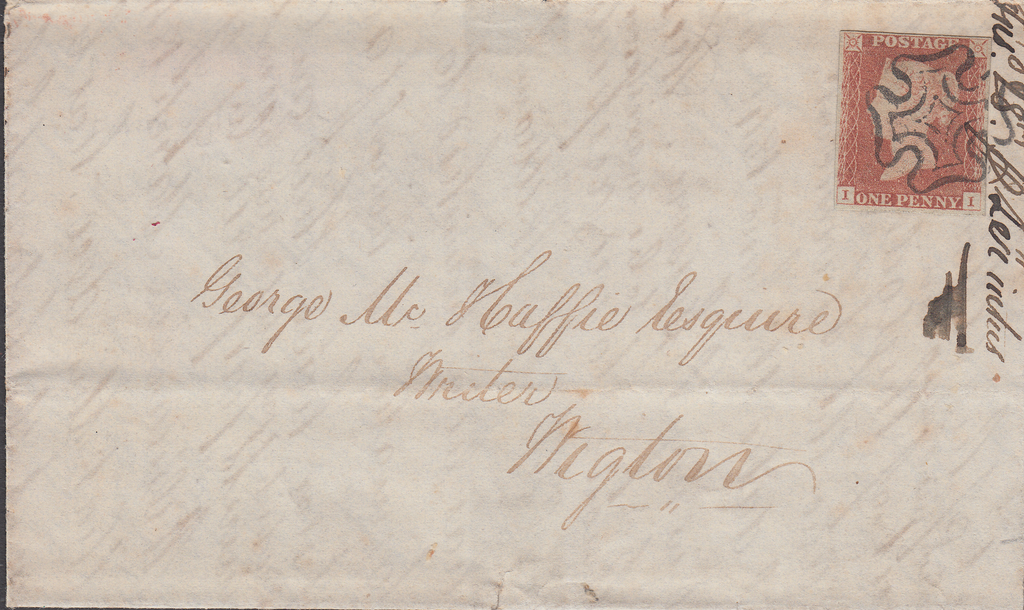 POSTAGE
I ONE PENNY I
George Mc Haffie Esquire
Writer
Wigton